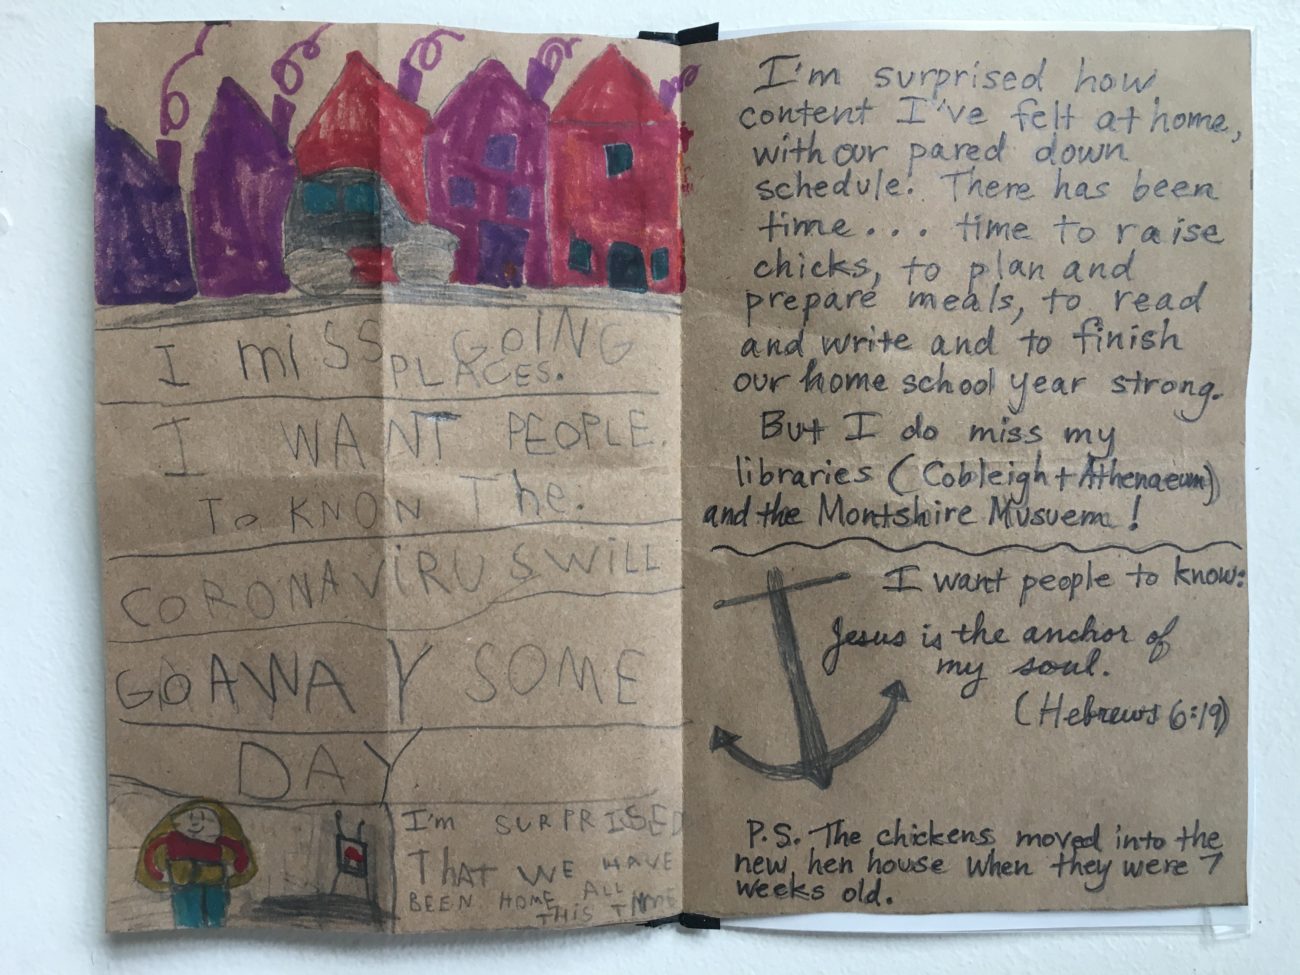 I miss GOING
PLACES.
I WANT PEOPLE.
To KNOW The.
CORONAVIRUS WILL
GO AWAY SOME
DAY
I'm SURPRISED
THAT WE HAVE
BEEN HOME ALL
THIS TIME
I'm surprised how
content I've felt at home,
with our pared down
schedule. There has been
time... time to raise
chicks, to plan and
prepare meals, to read
and write and to finish
our home school year strong.
But I do miss my
libraries (Cobleigh + Athenaeum)
and the Montshire Musuem!
I want people to know:
Jesus is the anchor of
my soul.
(Hebrews 6:19)
P.S. The chickens moved into the
new hen house when they were 7
weeks old.